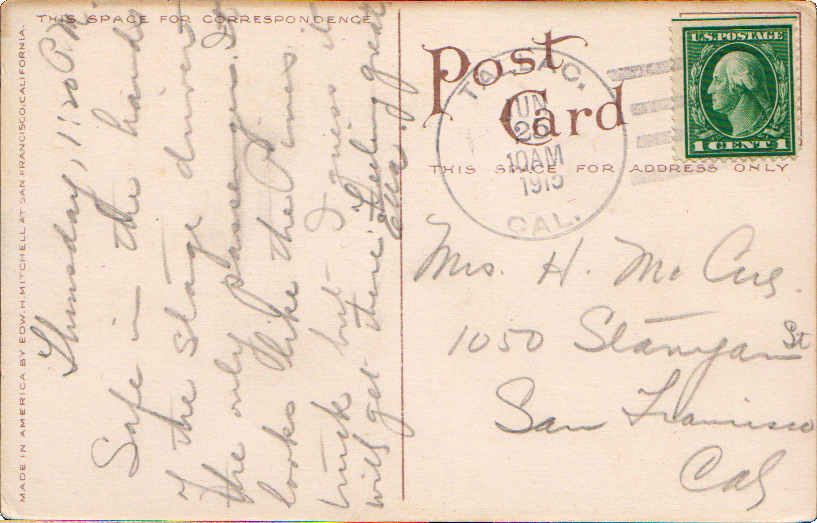 THIS SPACE FOR CORRESPONDENCE
Thursday, 1:20 P.M.
Safe in the hands
of the stage driver.
The only passenger. It
looks like the Pines it
but I guess it
will get there. Feeling great
Ella.
MADE IN AMERICA BY EDW. H. MITCHELL AT SAN FRANCISCO, CALIFORNIA.
Post
Card
THIS SPACE FOR ADDRESS ONLY
TALLAC.
JUN
10AM
1915
CAL.
U.S. POSTAGE
1 CENT 1
Mrs. H. Mc Cue.
1050 Stanyan St
San Francisco
Cal